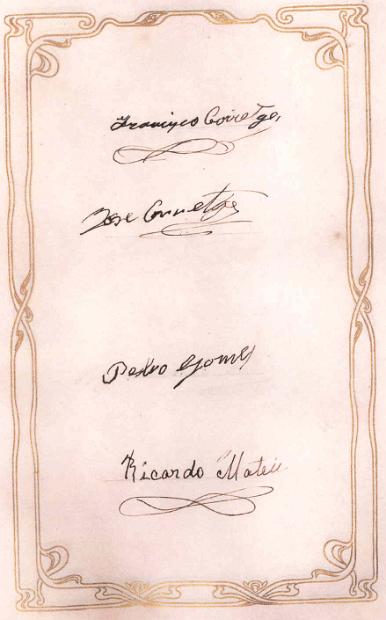 Francisco Corretge
Jose Corretge
Pedro Gomez
Ricardo Mateu